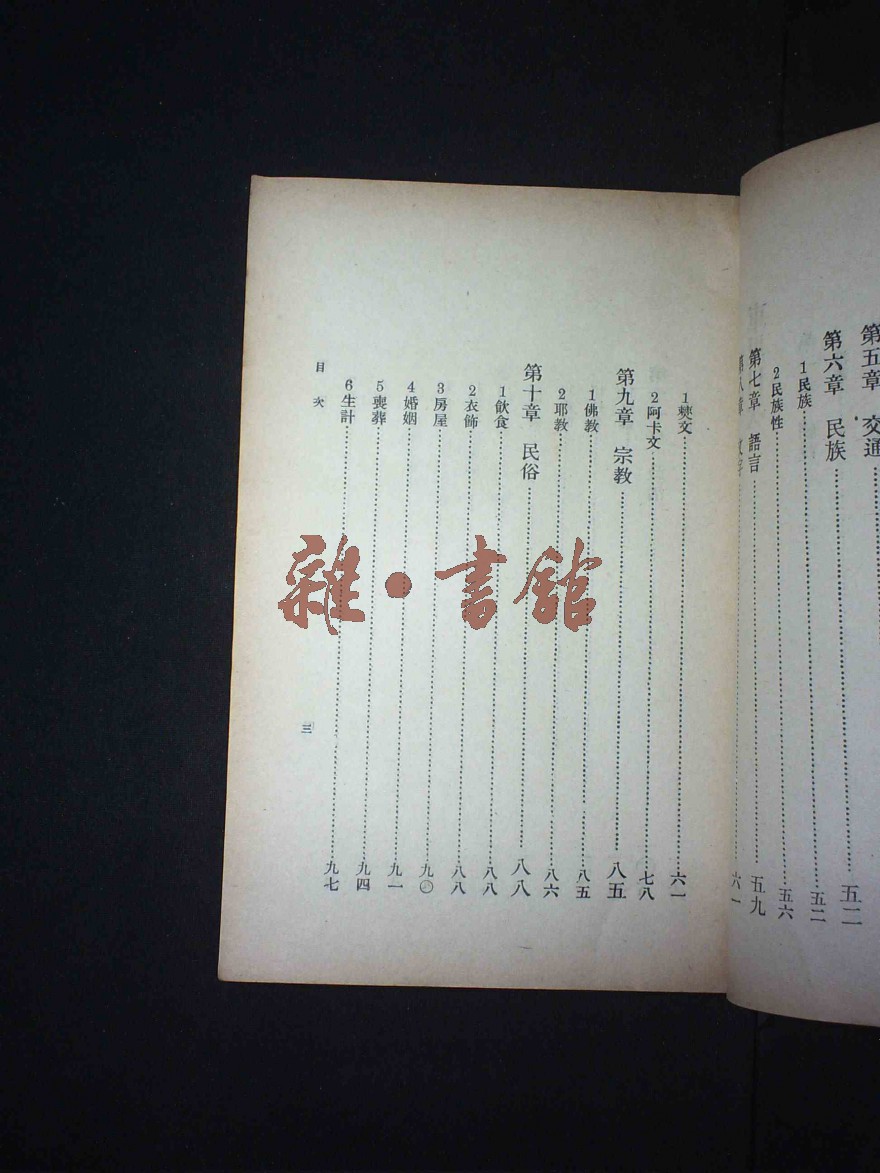 第五章 交通……
第六章 民族……五二
1 民族……五二
2 民族性……五六
第七章 語言……五九
第八章 文字……六一
1 僰文……六一
2 阿卡文……七八
第九章 宗教……八五
1 佛教……八五
2 耶教……八六
第十章 民俗……八八
1 飲食……八八
2 衣飾……八八
3 房屋……九〇
4 婚姻……九一
5 喪葬……九四
6 生計……九七
目次
三
雜·書館